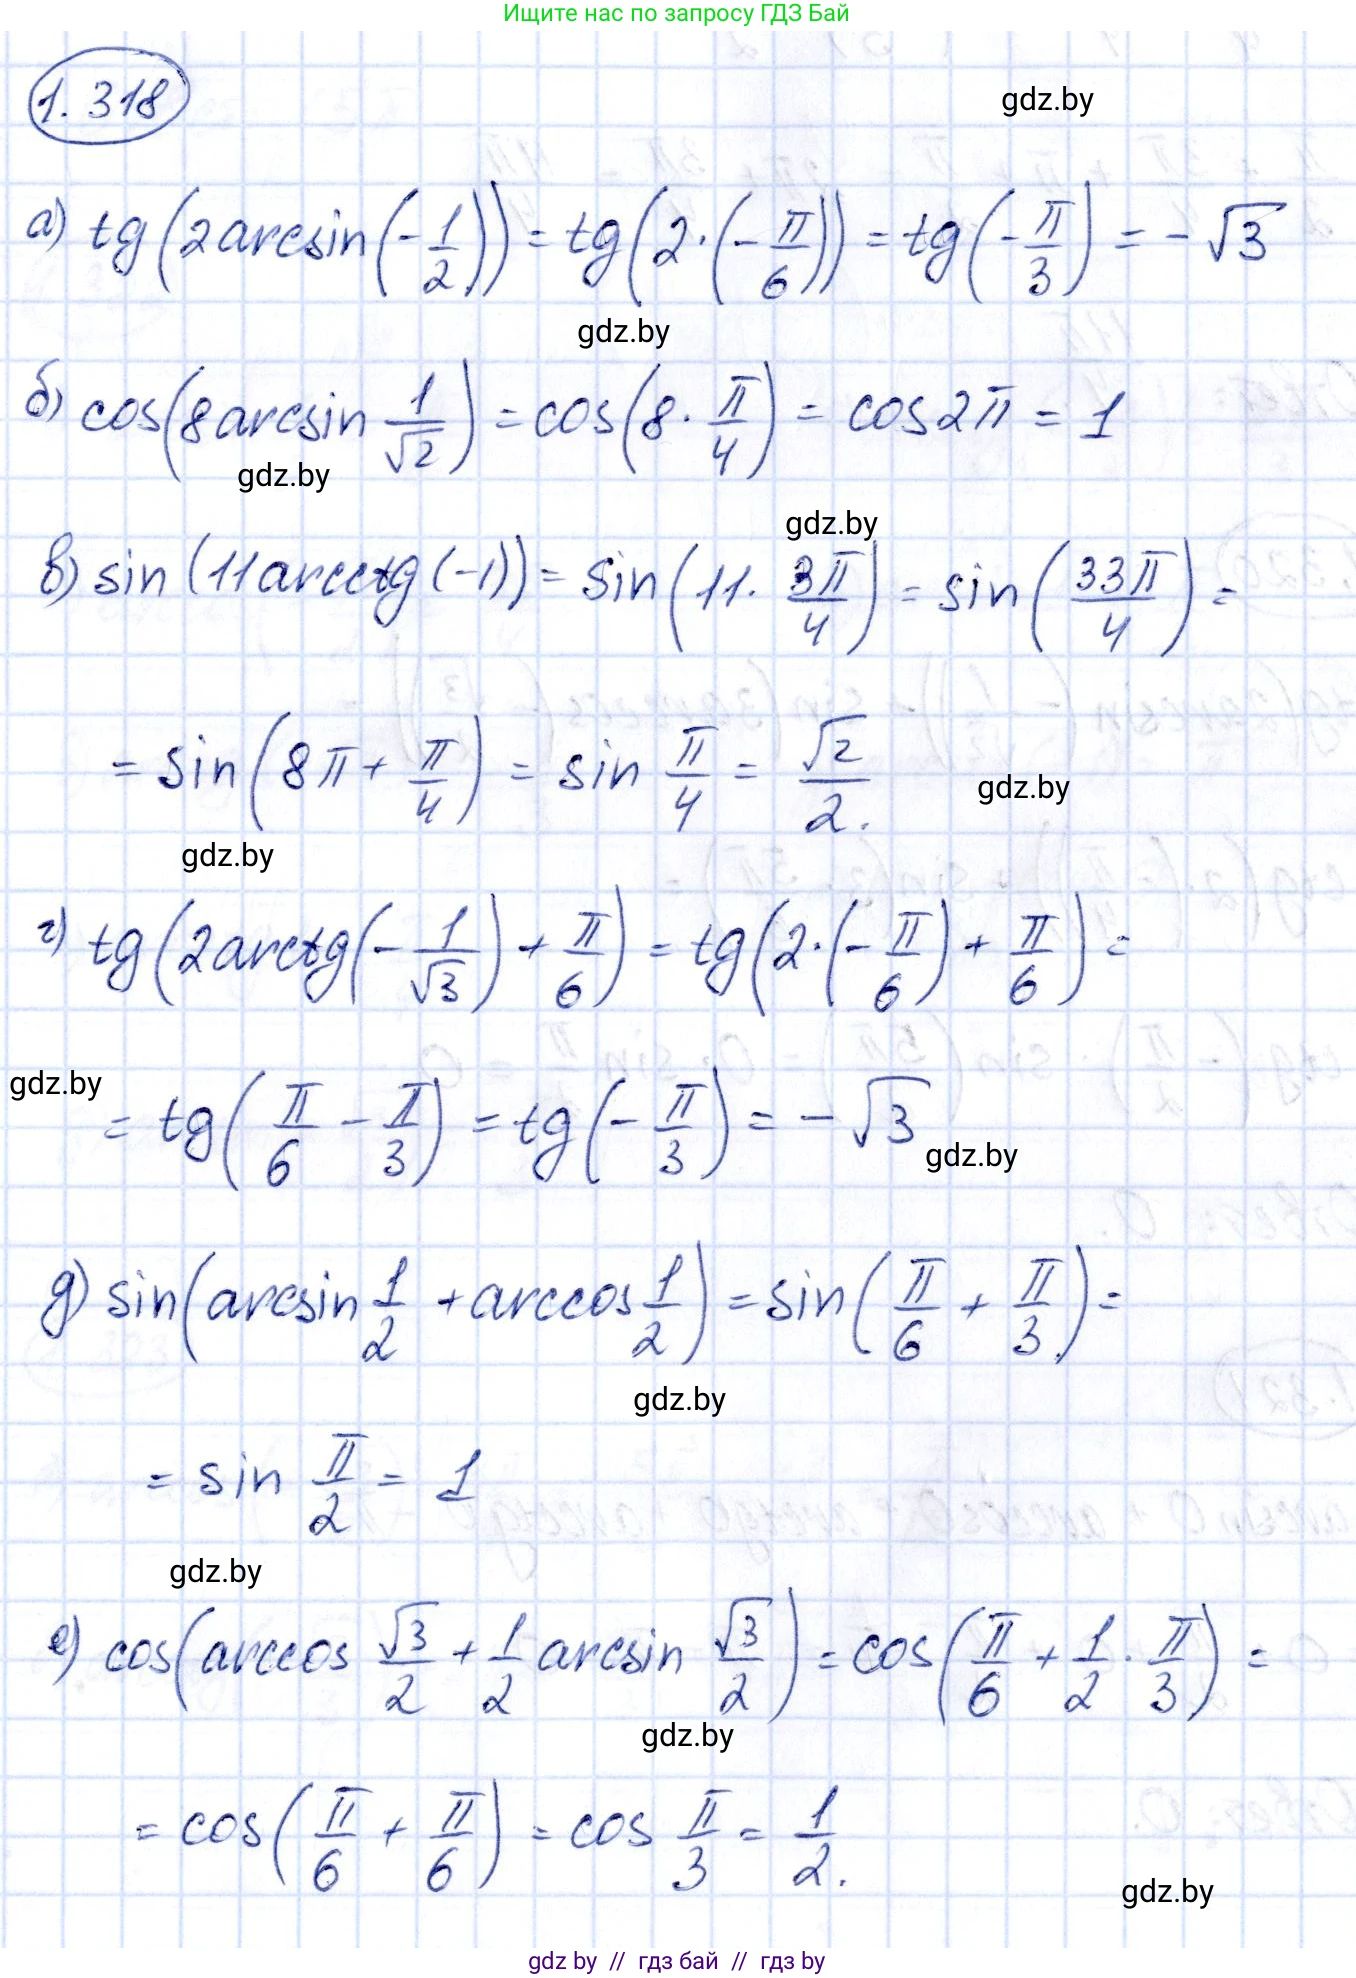 Ищите нас по запросу ГДЗ Бай
1.318
gdz.by
а) tg(2arcsin(-1/2)) = tg(2·(-π/6)) = tg(-π/3) = -√3
gdz.by
б) cos(8arcsin 1/√2) = cos(8·π/4) = cos2π = 1
gdz.by
gdz.by
в) sin(11arcctg(-1)) = sin(11·3π/4) = sin(33π/4) =
= sin(8π + π/4) = sin π/4 = √2/2.
gdz.by
gdz.by
г) tg(2arctg(-1/√3) + π/6) = tg(2·(-π/6) + π/6) =
gdz.by
= tg(π/6 - π/3) = tg(-π/3) = -√3
gdz.by
д) sin(arcsin 1/2 + arccos 1/2) = sin(π/6 + π/3) =
gdz.by
= sin π/2 = 1
gdz.by
е) cos(arccos √3/2 + 1/2 arcsin √3/2) = cos(π/6 + 1/2 · π/3) =
gdz.by
= cos(π/6 + π/6) = cos π/3 = 1/2.
gdz.by
gdz by // гдз бай // гдз by